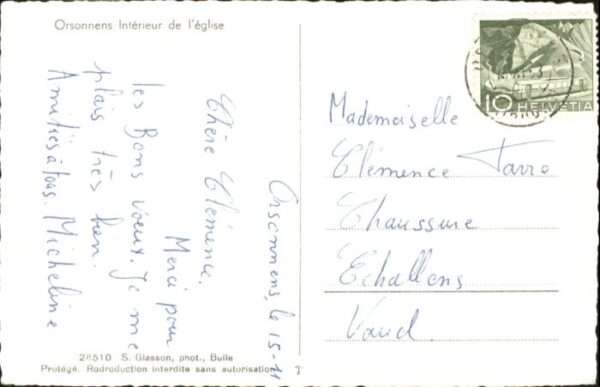 Orsonnens Intérieur de l'église
Orsonnens, le 15-11
Chère Clémence.
Merci pour
les Bons vœux. Je me
plais très bien.
Amitiés à tous. Micheline
Mademoiselle
Clémence Favre
Chaussure
Echallens
Vaud.
10 HELVETIA
28510 S. Glasson, phot., Bulle
Protégé. Radroduction interdite sans autorisation